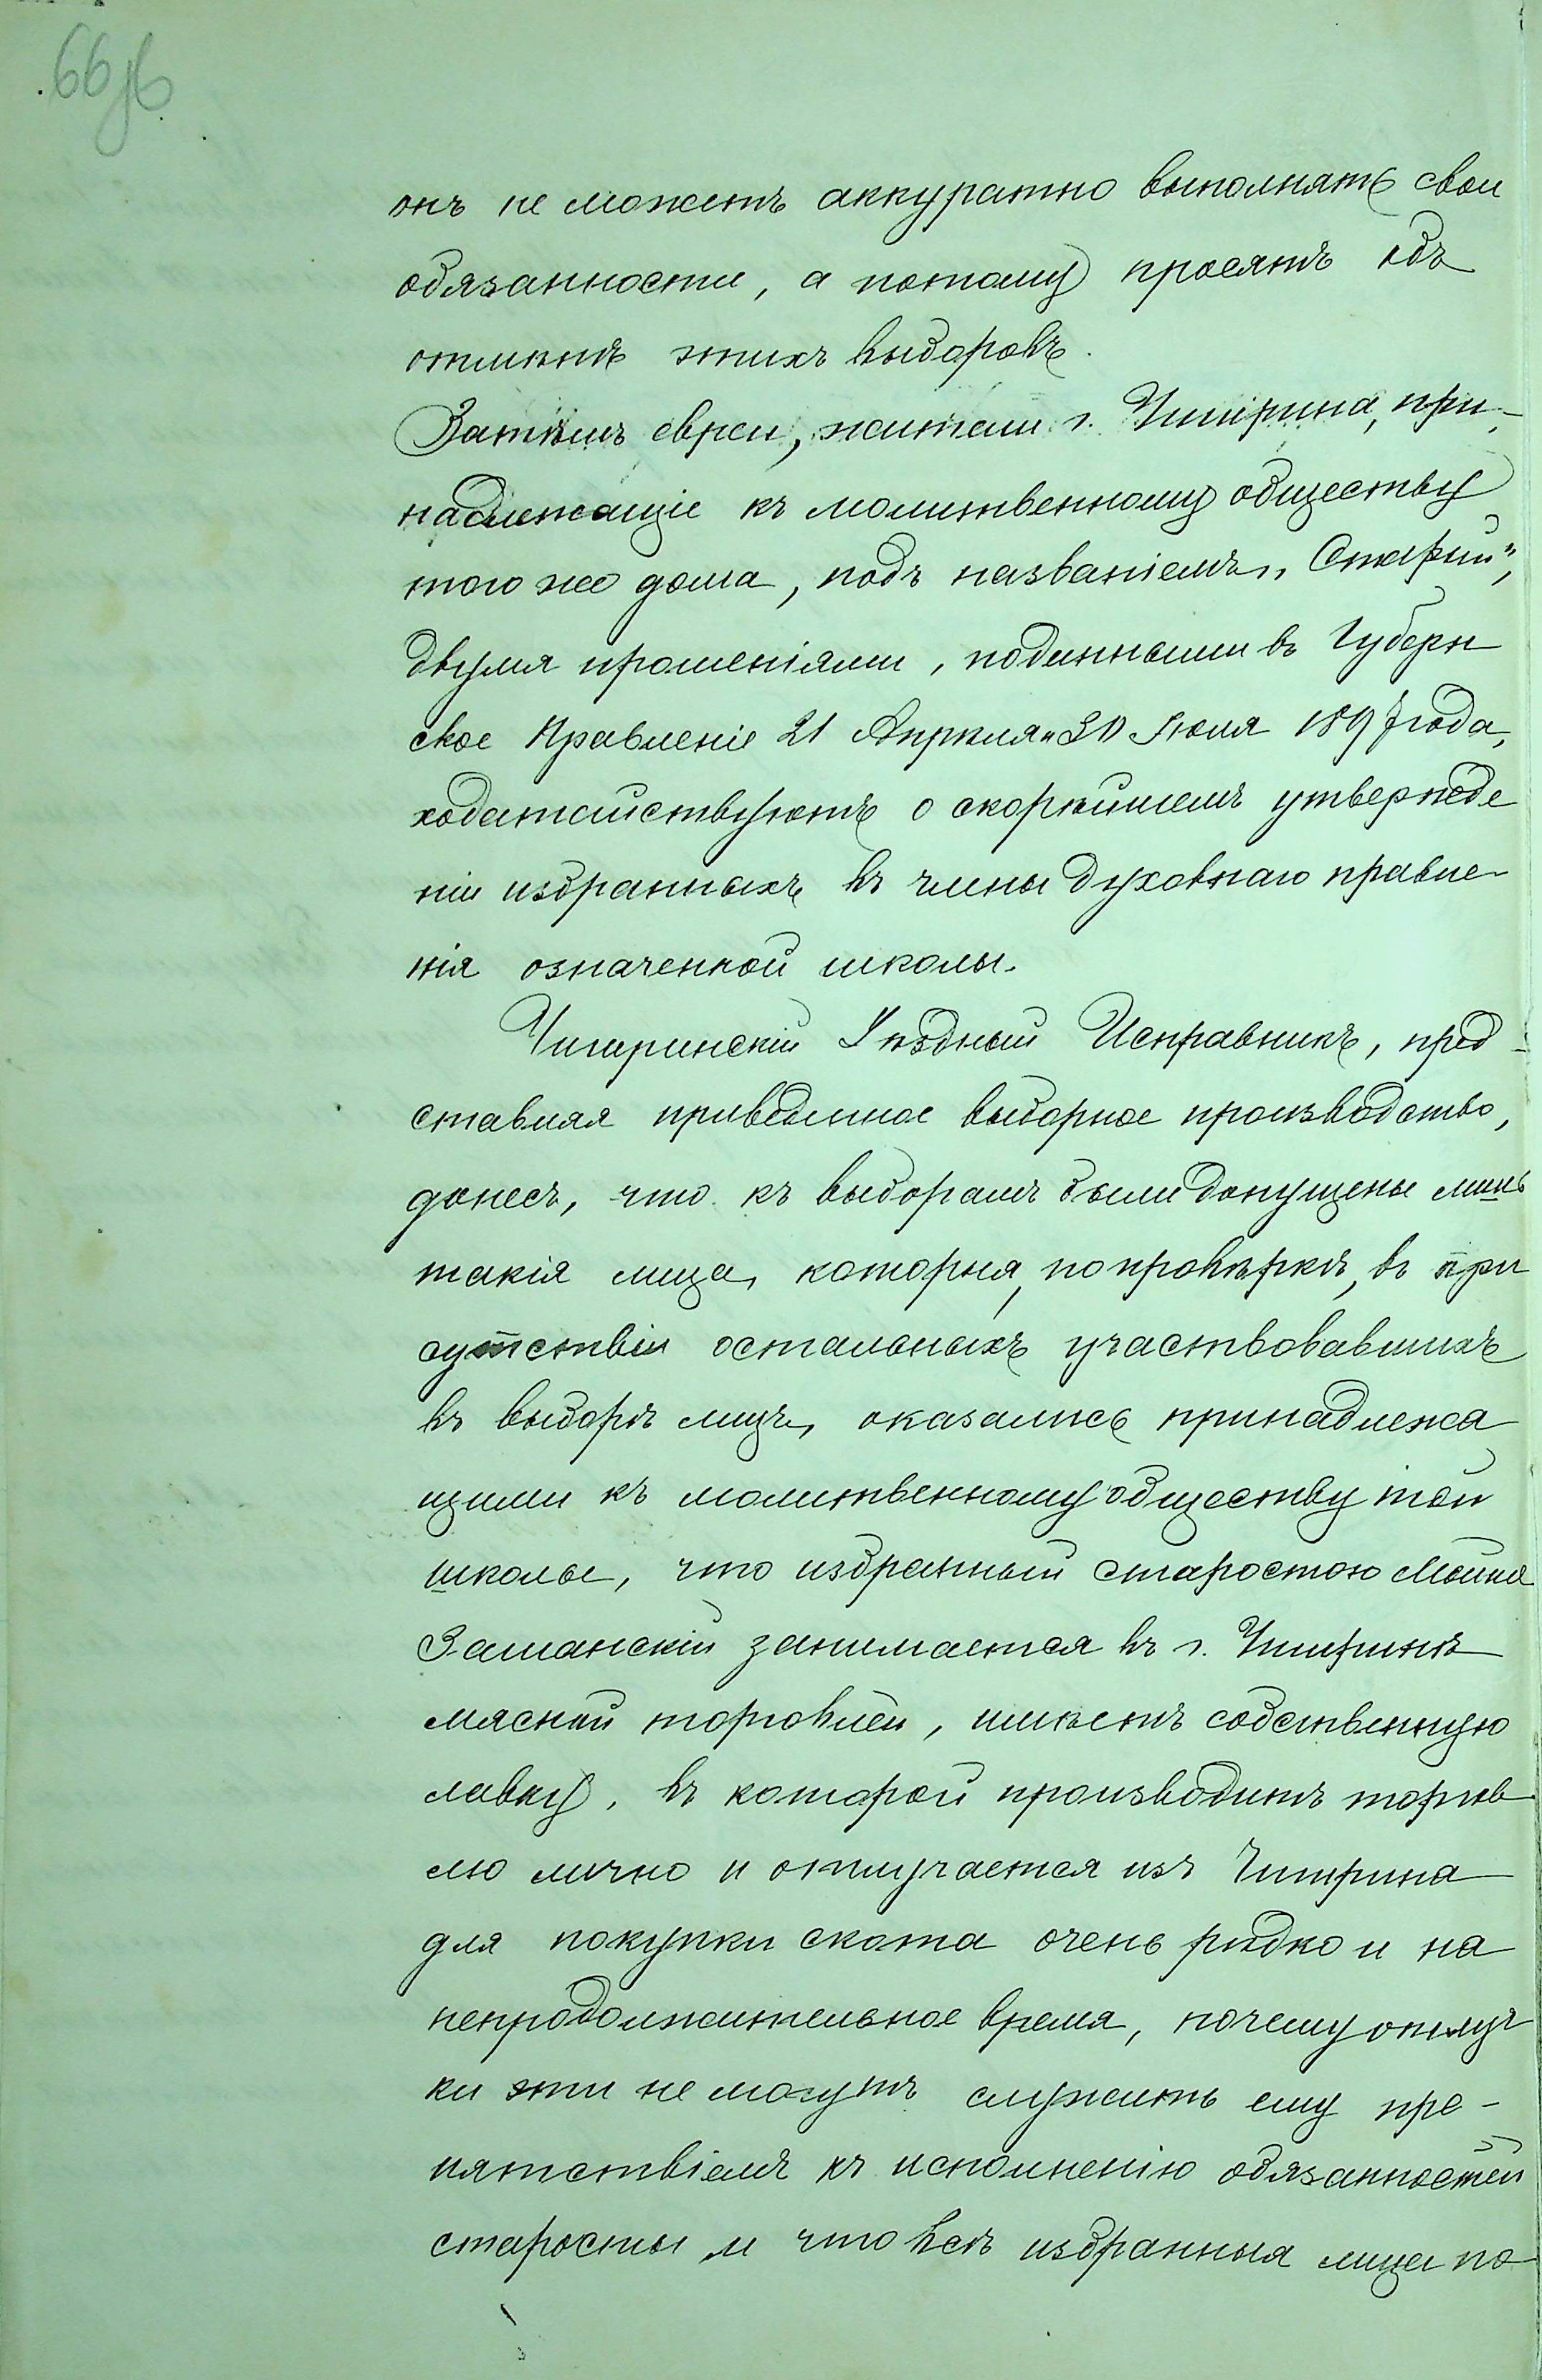 66 об
онъ не можетъ аккуратно выполнять свои
обязанности, а потому просятъ объ
отмѣнѣ этихъ выборовъ.
Затѣмъ евреи, жители г. Чигирина, при-
надлежащіе къ молитвенному обществу
того же дома, подъ названіемъ „Старый",
двумя прошеніями, поданными въ Губерн
ское Правленіе 21 Апрѣля и 30 Іюля 1897 года,
ходатайствуютъ о скорѣйшемъ утвержде
ніи избранныхъ въ члены духовнаго правле-
нія означенной школы.
Чигиринскій Уѣздный Исправникъ, пред-
ставляя приведенное выборное производство,
донесъ, что къ выборамъ были допущены лишь
такія лица, которыя, по провѣркѣ, въ при
сутствіи остальныхъ участвовавшихъ
въ выборѣ лицъ, оказались принадлежа
щими къ молитвенному обществу той
школы, что избранный старостою Мошка
Заманскій занимается въ г. Чигиринѣ
мясной торговлей, имѣетъ собственную
лавку, въ которой производитъ торгов
лю лично и отлучается изъ Чигирина
для покупки скота очень рѣдко и на
непродолжительное время, почему отлуч
ки эти не могутъ служить ему пре-
пятствіемъ къ исполненію обязанностей
старосты и что всѣ избранныя лица по